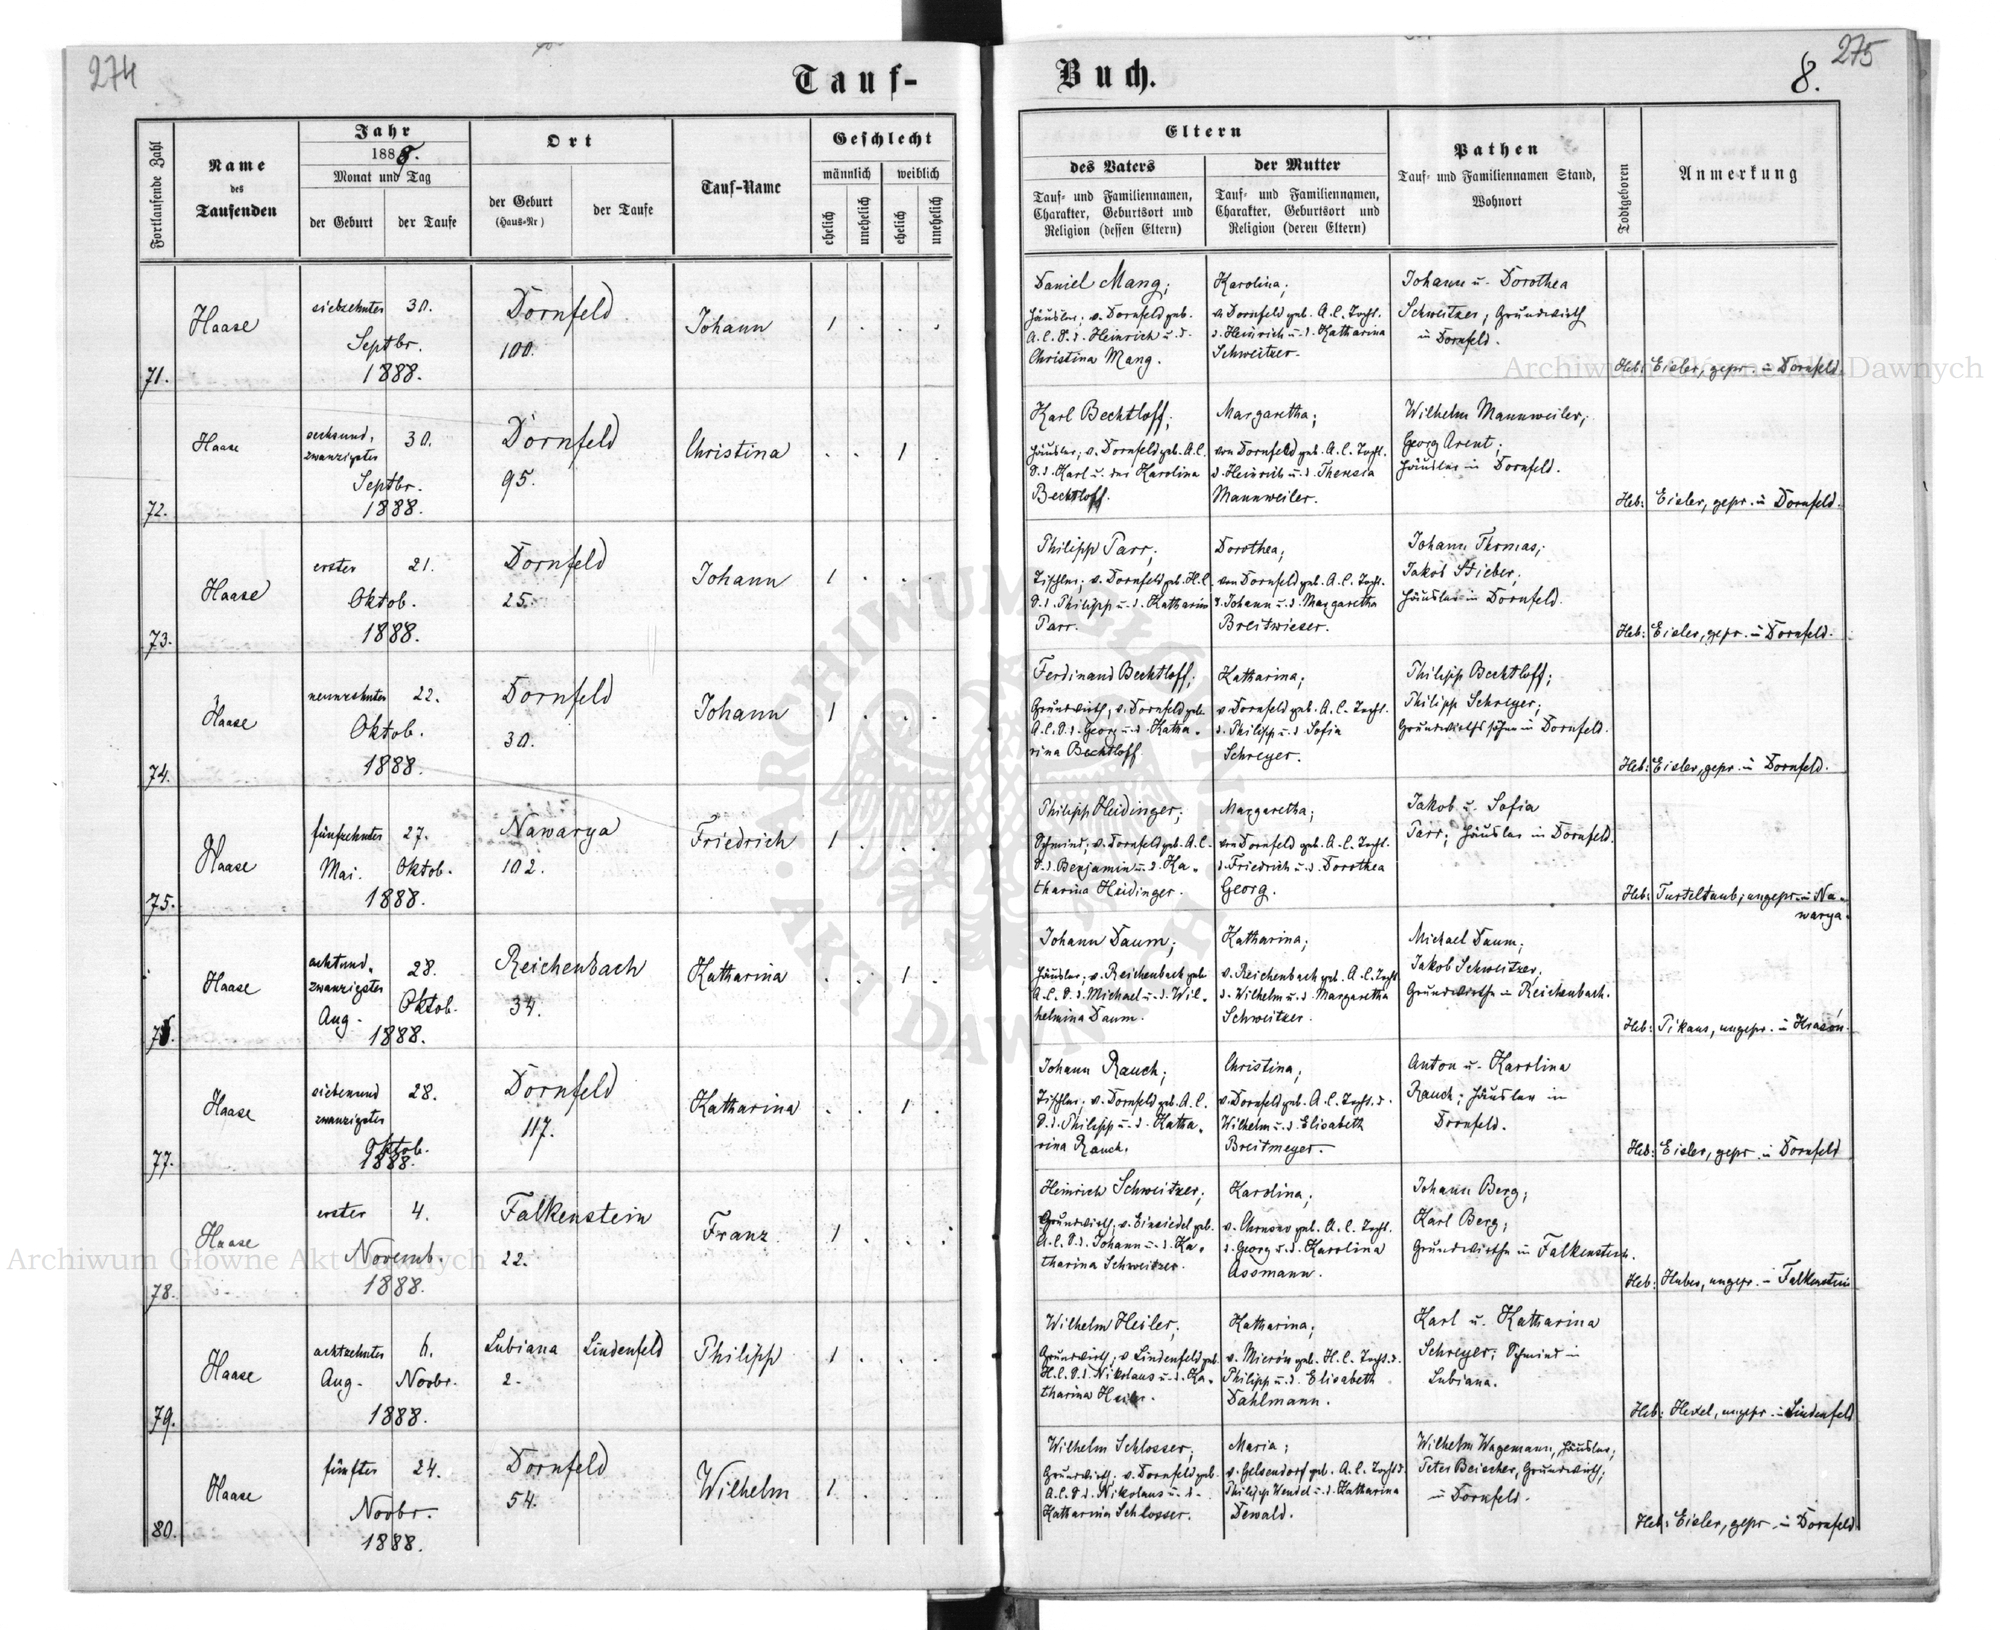 274
275
Tauf-
Buch.
8.
Fortlaufende Zahl
Name
des
Taufenden
Jahr
1888.
Monat und Tag
der Geburt
der Taufe
Ort
der Geburt
(Haus-Nr)
der Taufe
Tauf-Name
Geschlecht
männlich
weiblich
ehelich
unehelich
ehelich
unehelich
Eltern
des Vaters
Tauf- und Familiennamen,
Charakter, Geburtsort und
Religion (dessen Eltern)
der Mutter
Tauf- und Familiennamen,
Charakter, Geburtsort und
Religion (deren Eltern)
Pathen
Tauf- und Familiennamen Stand,
Wohnort
Todtgeboren
Anmerkung
71.
Haase
siebzehnter 30.
Septbr.
1888.
Dornfeld
100.
Johann
1 . . .
Daniel Mang;
Häusler; v. Dornfeld geb.
A.C. S.d. Heinrich u. d.
Christina Mang.
Karolina;
v. Dornfeld geb. A.C. Tocht.
d. Heinrich u. d. Katharina
Schweitzer.
Johann u. Dorothea
Schweitzer; Grundwirth
in Dornfeld.
Heb: Eisler, gepr. in Dornfeld.
72.
Haase
sechsund,
zwanzigster
30.
Septbr.
1888.
Dornfeld
95.
Christina
. . 1 .
Karl Bechtloff;
Häusler; v. Dornfeld geb. A.C.
S.d. Karl u. der Karolina
Bechtloff.
Margaretha;
von Dornfeld geb. A.C. Tocht.
d. Heinrich u. d. Theresia
Mannweiler.
Wilhelm Mannweiler;
Georg Arent;
Häusler in Dornfeld.
Heb: Eisler, gepr. in Dornfeld.
73.
Haase
erster 21.
Oktob.
1888.
Dornfeld
25.
Johann
1 . . .
Philipp Parr;
Tischler; v. Dornfeld geb. H.C.
S.d. Philipp u. d. Katharina
Parr.
Dorothea;
von Dornfeld geb. A.C. Tocht.
d. Johann u. d. Margaretha
Breitwieser.
Johann Thomas;
Jakob Stieber;
Häusler in Dornfeld.
Heb: Eisler, gepr. in Dornfeld.
74.
Haase
neunzehnter 22.
Oktob.
1888.
Dornfeld
30.
Johann
1 . . .
Ferdinand Bechtloff;
Grundwirth; v. Dornfeld geb.
A.C. S.d. Georg u. d. Katha,
rina Bechtloff.
Katharina;
v. Dornfeld geb. A.C. Tocht.
d. Philipp u. d. Sofia
Schreyer.
Philipp Bechtloff;
Philipp Schreyer;
Grundwirthssöhne in Dornfeld.
Heb: Eisler, gepr. in Dornfeld.
75.
Haase
fünfzehnter 27.
Mai. Oktob.
1888.
Nawarya
102.
Friedrich
1 . . .
Philipp Heidinger;
Schmied; v. Dornfeld geb. A.C.
S.d. Benjamin u. d. Ka,
tharina Heidinger.
Margaretha;
von Dornfeld geb. A.C. Tocht.
d. Friedrich u. d. Dorothea
Georg.
Jakob u. Sofia
Parr; Häusler in Dornfeld.
Heb: Turteltaub, ungepr. in Na,
warya.
76.
Haase
achtund,
zwanzigster
Aug.
28.
Oktob.
1888.
Reichenbach
34.
Katharina
. . 1 .
Johann Daum;
Häusler; v. Reichenbach geb.
A.C. S.d. Michael u. d. Wil,
helmina Daum.
Katharina;
v. Reichenbach geb. A.C. Tocht.
d. Wilhelm u. d. Margaretha
Schweitzer.
Michael Daum;
Jakob Schweitzer;
Grundwirthe in Reichenbach.
Heb: Pikaus, ungepr. in Krasów.
77.
Haase
siebenund
zwanzigster
28.
Oktob.
1888.
Dornfeld
117.
Katharina
. . 1 .
Johann Rauch;
Tischler; v. Dornfeld geb. A.C.
S.d. Philipp u. d. Katha,
rina Rauch.
Christina;
v. Dornfeld geb. A.C. Tocht. d.
Wilhelm u. d. Elisabeth
Breitmeyer.
Anton u. Karolina
Rauch; Häusler in
Dornfeld.
Heb: Eisler, gepr. in Dornfeld
78.
Haase
erster 4.
Novemb.
1888.
Falkenstein
22.
Franz
1 . . .
Heinrich Schweitzer;
Grundwirth; v. Einsiedel geb.
A.C. S.d. Johann u. d. Ka,
tharina Schweitzer.
Karolina;
v. Chrusno geb. A.C. Tocht.
d. Georg u. d. Karolina
Assmann.
Johann Berg;
Karl Berg;
Grundwirthe in Falkenstein.
Heb: Huber, ungepr. in Falkenstein
79.
Haase
achtzehnter 6.
Aug. Novbr.
1888.
Lubiana Lindenfeld
2.
Philipp
1 . . .
Wilhelm Heiler;
Grundwirth; v. Lindenfeld geb.
H.C. S.d. Nikolaus u. d. Ka,
tharina Heiler.
Katharina;
v. Mierów geb. H.C. Tocht. d.
Philipp u. d. Elisabeth
Dahlmann.
Karl u. Katharina
Schreyer; Schmied in
Lubiana.
Heb: Hexel, ungepr. in Lindenfeld
80.
Haase
fünfter 24.
Novbr.
1888.
Dornfeld
54.
Wilhelm
1 . . .
Wilhelm Schlosser;
Grundwirth; v. Dornfeld geb.
A.C. S.d. Nikolaus u. d.
Katharina Schlosser.
Maria;
v. Gelsendorf geb. A.C. Tocht. d.
Philipp Wendel u. d. Katharina
Dewald.
Wilhelm Wagemann, Häusler;
Peter Beischer, Grundwirth;
in Dornfeld.
Heb: Eisler, gepr. in Dornfeld
Archiwum Główne Akt Dawnych
Archiwum Główne Akt Dawnych